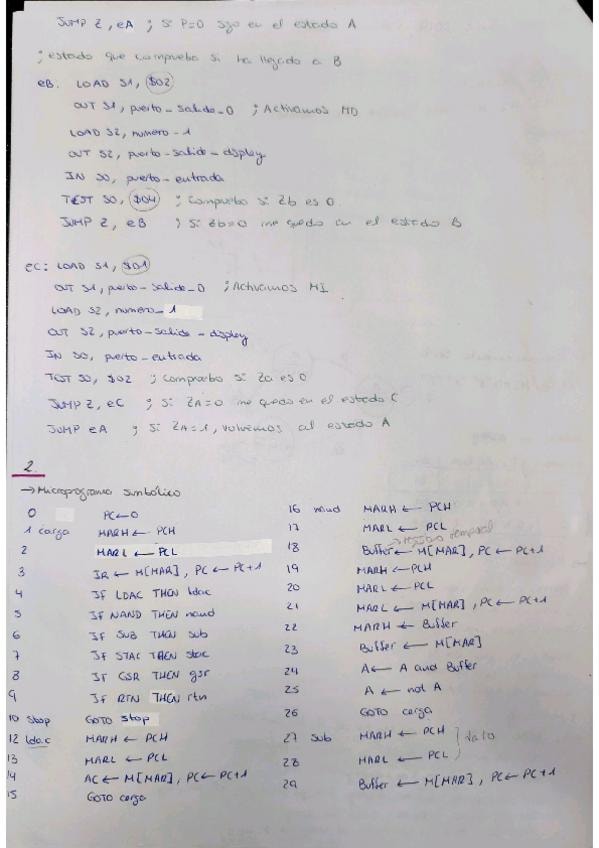 JUMP Z, eA ; Si P=0 sigo en el estado A
; estado que comprueba si ha llegado a B
eB: LOAD S1, $02
OUT S1, puerto-salida-0 ; Activamos MD
LOAD S2, numero-1
OUT S2, puerto-salida-display
IN S0, puerto-entrada
TEST S0, $04 ; Compruebo si Zb es 0
JUMP Z, eB ; Si Zb=0 me quedo en el estado B
eC: LOAD S1, $01
OUT S1, puerto-salida-0 ; Activamos MI
LOAD S2, numero-1
OUT S2, puerto-salida-display
IN S0, puerto-entrada
TEST S0, $02 ; Compruebo si Za es 0
JUMP Z, eC ; Si ZA=0 me quedo en el estado C
JUMP eA ; Si ZA=1, volvemos al estado A
2.
→ Microprograma simbólico
0 PC←0
1 carga MARH ← PCH
2 MARL ← PCL
3 IR ← M[MAR], PC ← PC+1
4 IF LDAC THEN ldac
5 IF NAND THEN nand
6 IF SUB THEN sub
7 IF STAC THEN stac
8 IF GSR THEN gsr
9 IF RTN THEN rtn
10 Stop GOTO stop
12 ldac MARH ← PCH
13 MARL ← PCL
14 AC ← M[MAR], PC ← PC+1
15 GOTO carga
16 nand MARH ← PCH
17 MARL ← PCL
temporal
18 Buffer ← M[MAR], PC ← PC+1
19 MARH ← PCH
20 MARL ← PCL
21 MARL ← M[MAR], PC ← PC+1
22 MARH ← Buffer
23 Buffer ← M[MAR]
24 A ← A and Buffer
25 A ← not A
26 GOTO carga
27 sub MARH ← PCH } dato
28 MARL ← PCL
29 Buffer ← M[MAR], PC ← PC+1